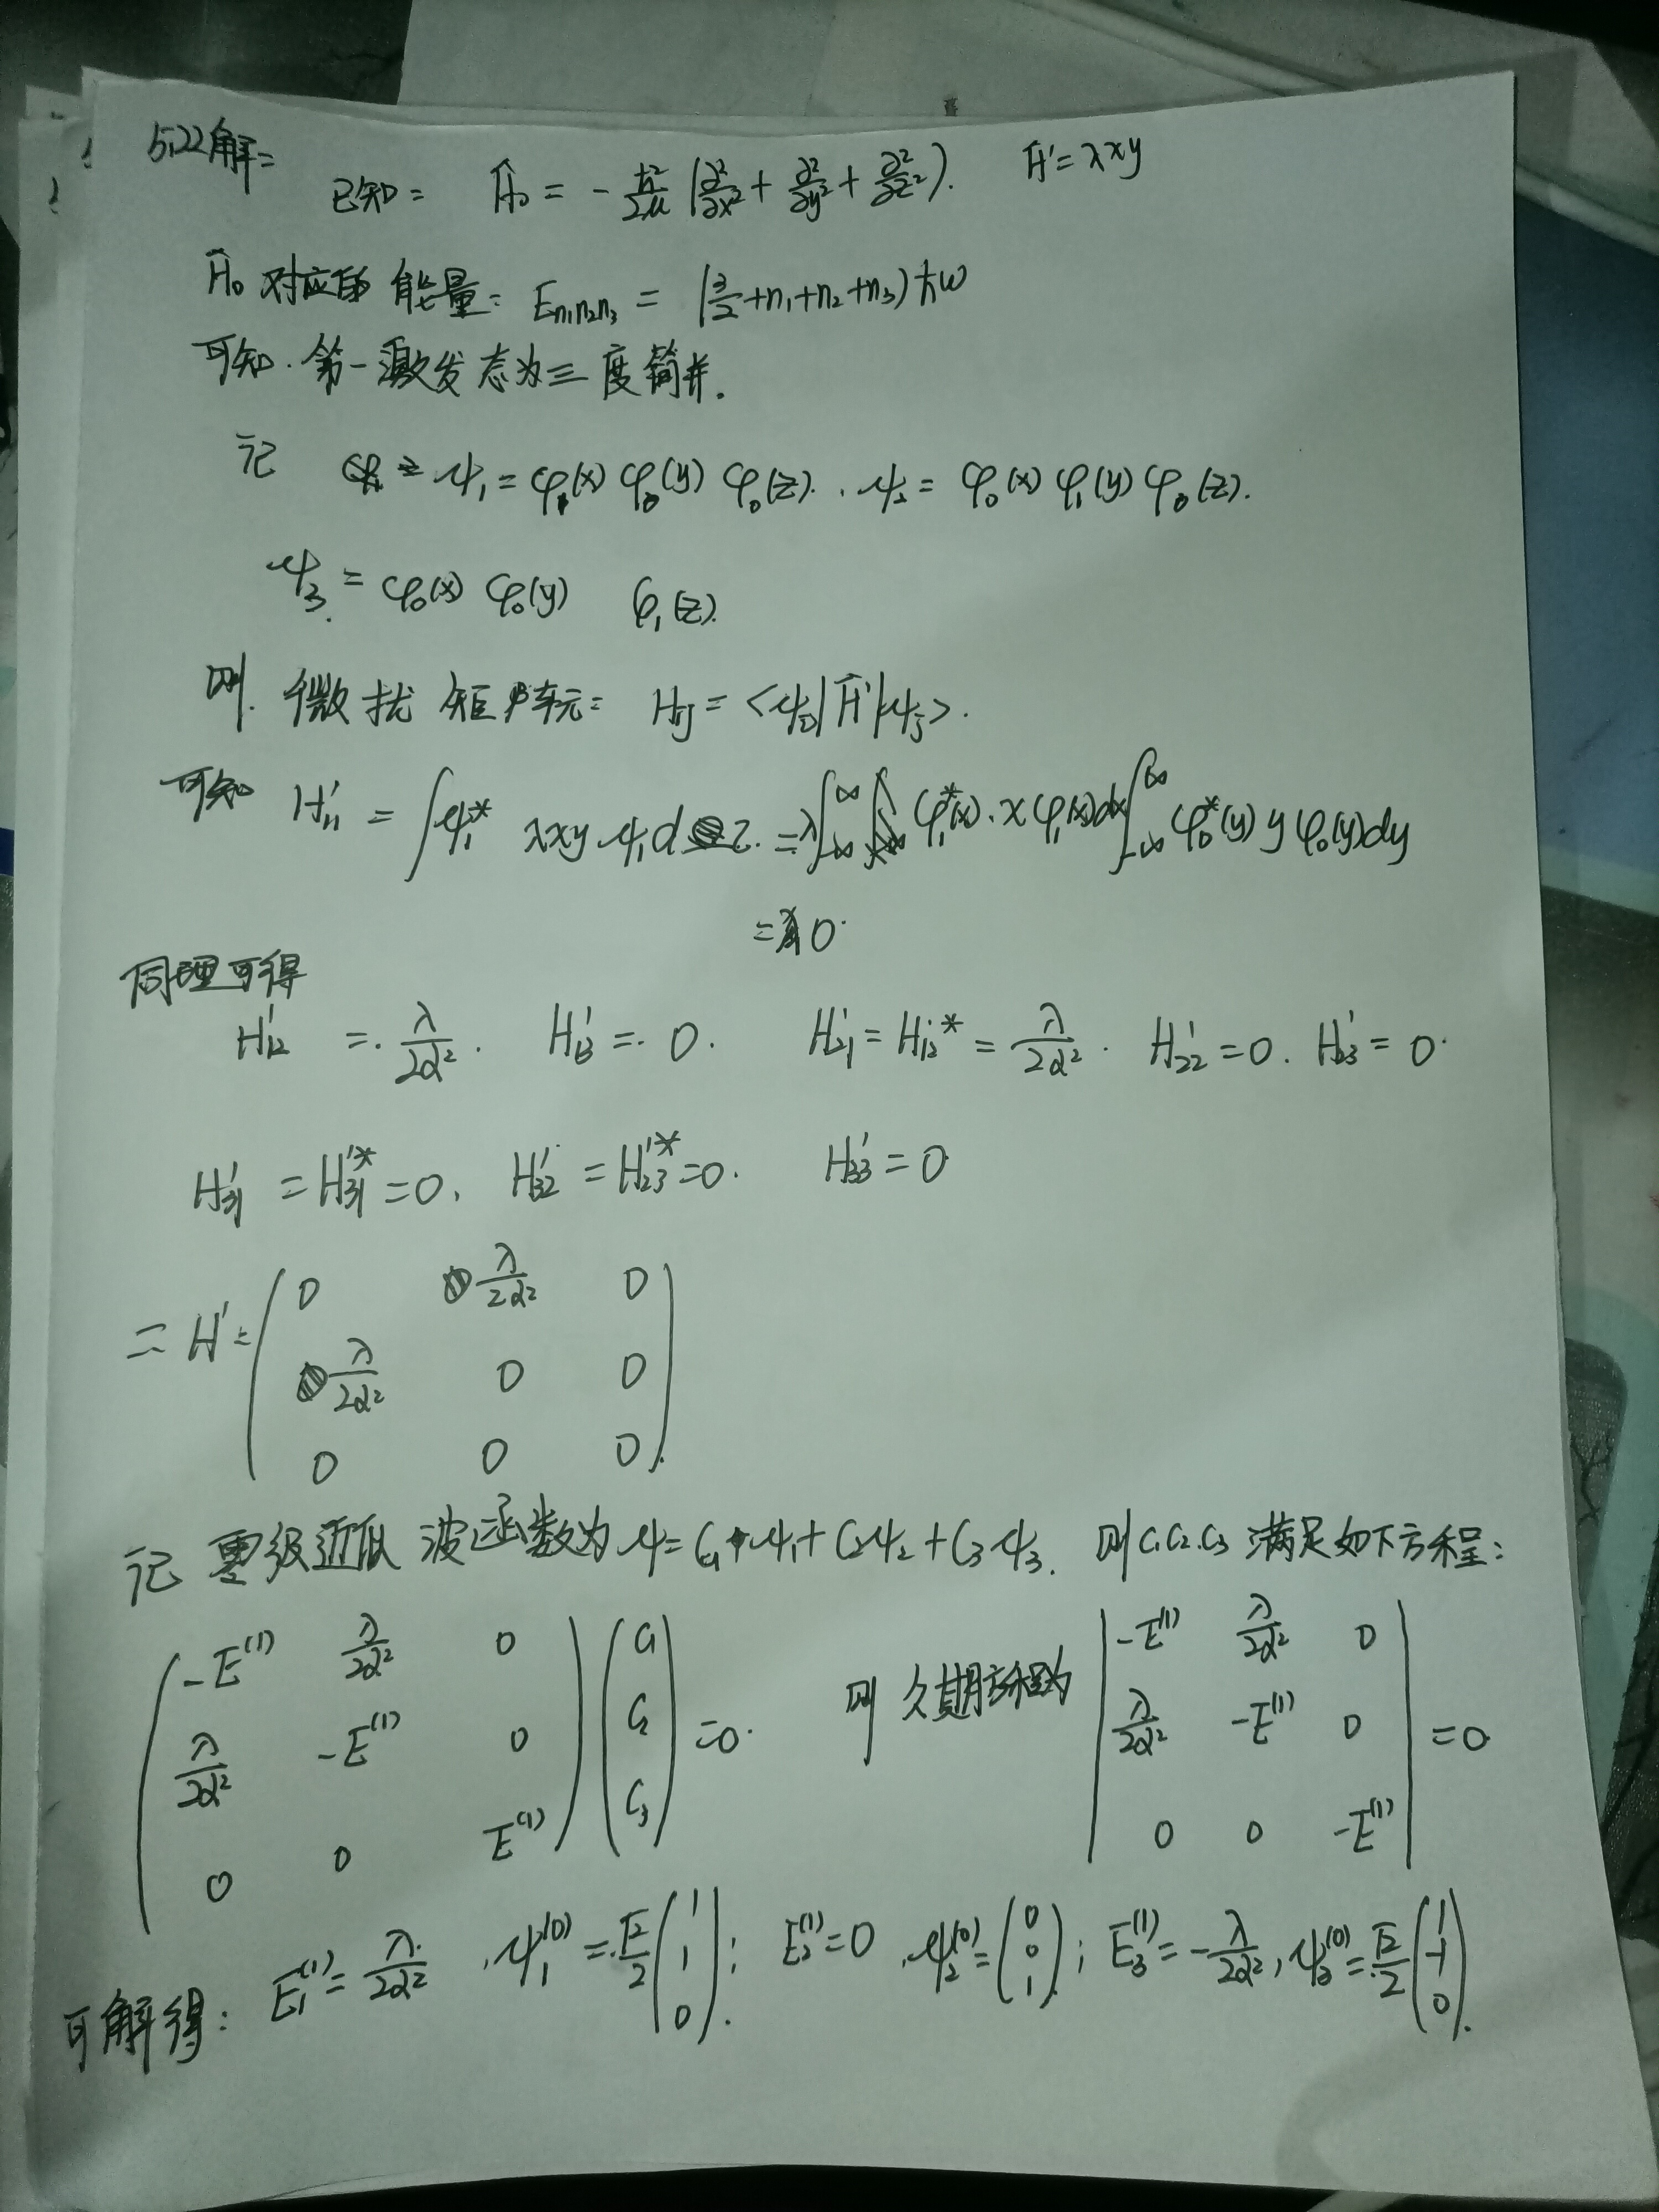 5.22解:
已知: Ĥ₀ = -ħ²/2μ (∂²/∂x² + ∂²/∂y² + ∂²/∂z²). Ĥ' = λxy
Ĥ₀ 对应的能量: E_{n₁n₂n₃} = (3/2+n₁+n₂+n₃)ħω
可知.第一激发态为三度简并.
记 ψ₁ = φ₁(x) φ₀(y) φ₀(z). , ψ₂ = φ₀(x) φ₁(y) φ₀(z).
ψ₃. = φ₀(x) φ₀(y) φ₁(z).
则. 微扰矩阵元: H_{ij} = <ψᵢ|Ĥ'|ψⱼ>.
可知 H'₁₁ = ∫ψ₁* λxy ψ₁dτ. = λ∫_{-∞}^{∞} φ₁*(x).xφ₁(x)dx∫_{-∞}^{∞} φ₀*(y) y φ₀(y)dy
= 0.
同理可得
H'₁₂ = λ/2α². H'₁₃ = 0. H'₂₁ = H'₁₂* = λ/2α². H'₂₂ = 0. H'₂₃ = 0.
H'₃₁ = H'₃₁* = 0, H'₃₂ = H'₂₃* = 0. H'₃₃ = 0
= H' = ( 0 λ/2α² 0
λ/2α² 0 0
0 0 0 ).
记 零级近似波函数为 ψ = C₁ψ₁ + C₂ψ₂ + C₃ψ₃. 则C₁C₂.C₃ 满足如下方程:
( -E⁽¹⁾ λ/2α² 0 ) ( C₁ ) 则久期方程为 | -E⁽¹⁾ λ/2α² 0 |
( λ/2α² -E⁽¹⁾ 0 ) ( C₂ ) = 0. | λ/2α² -E⁽¹⁾ 0 | = 0
( 0 0 E⁽¹⁾ ) ( C₃ ) | 0 0 -E⁽¹⁾ |
可解得: E₁⁽¹⁾ = λ/2α² , ψ₁⁽⁰⁾ = √2/2 (1 1 0); E₂⁽¹⁾ = 0 , ψ₂⁽⁰⁾ = (0 0 1); E₃⁽¹⁾ = -λ/2α², ψ₃⁽⁰⁾ = √2/2 (1 -1 0).